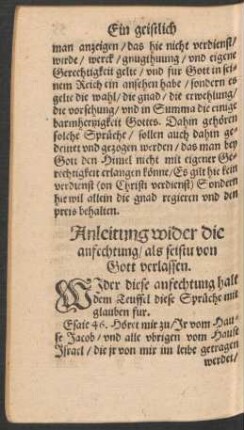 Ein geistlich
man anzeigen / das hie nicht verdienst /
wirde / werck / gnugthuung / und eigene
Gerechtigkeit gelte / und für Gott in sei
nem Reich ein ansehen habe / sondern es
gelte die wahl / die gnad / die erwehlung /
die vorsehung / und in Summa die einige
barmhertzigkeit Gottes. Dahin gehören
solche Sprüche / sollen auch dahin ge-
deutet und gezogen werden / das man bey
Gott den Himel nicht mit eigener Ge-
rechtigkeit erlangen könne / Es gilt hie kein
verdienst (on Christi verdienst) Sondern
hie wil allein die gnad regieren und den
preis behalten.
Anleitung wider die
anfechtung / als seistu von
Gott verlassen.
WIder diese anfechtung halt
dem Teuffel diese Sprüche mit
glauben fur.
Esaie 46. Höret mir zu / Jr vom Hau-
se Jacob / und alle übrigen vom Hause
Israel / die jr von mir im leibe getragen
werdet /